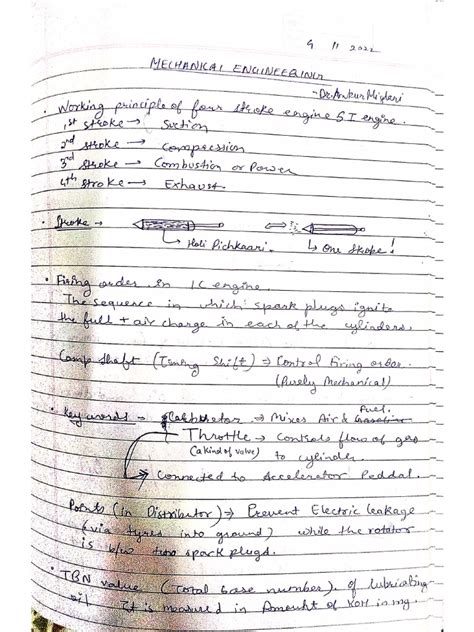 9 11 2022
MECHANICAL ENGINEERING
- Dr. Ankur Miglani
• Working principle of four stroke engine SI engine.
1st stroke → Suction
2nd stroke → Compression
3rd stroke → Combustion or Power
4th stroke → Exhaust
• Stroke →
→ Holi Pichkaari. → One stroke!
• Firing order in IC engine.
The sequence in which spark plugs ignite
the full + air charge in each of the cylinders.
Camp shaft (Timing Shift) → Control firing order.
(Purely Mechanical)
• Key words → → Mixes Air & Fuel.
Throttle → Controls flow of gas
(a kind of valve) to cylinder.
→ Connected to Accelerator Peddal.
Points (in Distributor) → Prevent Electric leakage
(via tyres into ground) while the rotator
is b/w two spark plugs.
• TBN value (Total base number) of lubricating
oil It is measured in Amount of KOH in mg.